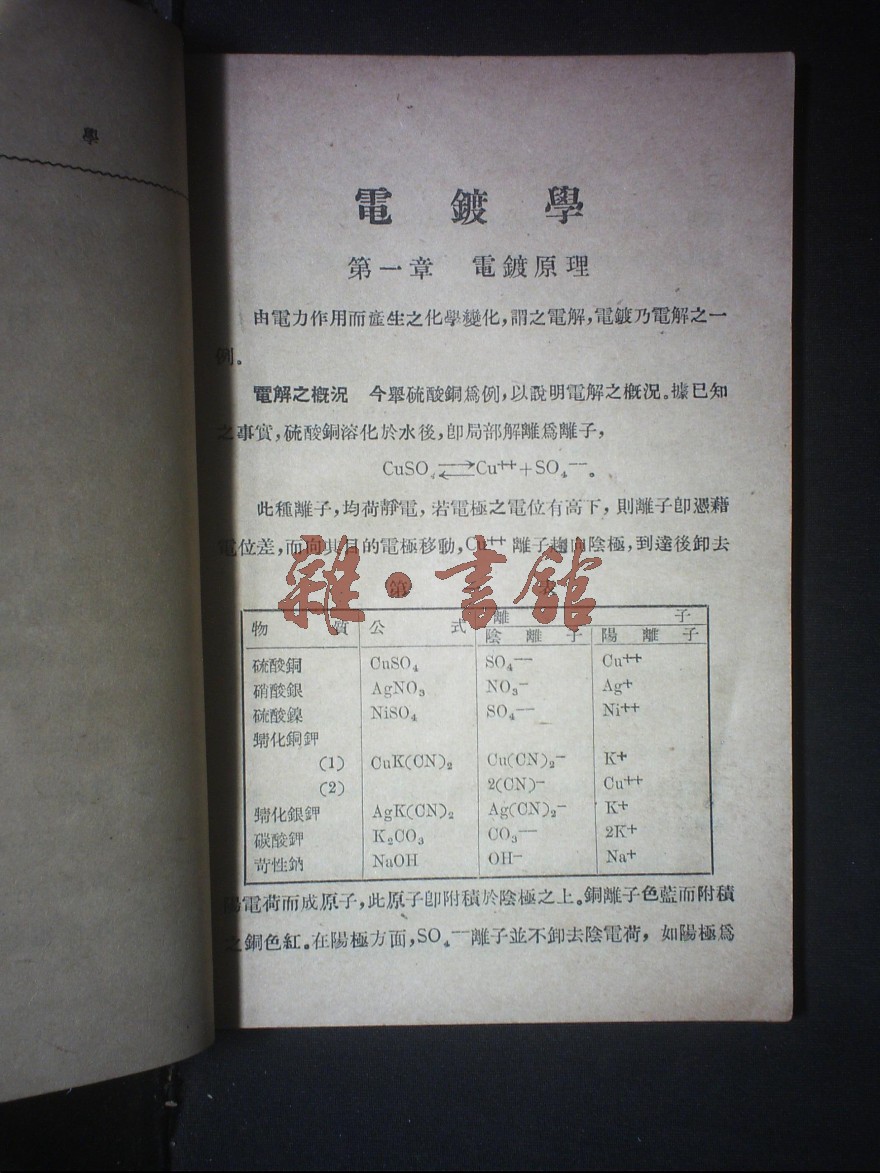 學
電鍍學
第一章 電鍍原理
由電力作用而產生之化學變化,謂之電解,電鍍乃電解之一
例。
電解之概況 今舉硫酸銅爲例,以說明電解之概況。據已知
之事實,硫酸銅溶化於水後,卽局部解離爲離子,
CuSO₄⇄Cu⁺⁺+SO₄⁻⁻。
此種離子,均荷靜電,若電極之電位有高下,則離子卽憑藉
電位差,而向其目的電極移動,Cu⁺⁺離子趨向陰極,到達後卸去
雜·書館
第 表
物質 公式 離子
陰離子 陽離子
硫酸銅 CuSO₄ SO₄⁻⁻ Cu⁺⁺
硝酸銀 AgNO₃ NO₃⁻ Ag⁺
硫酸鎳 NiSO₄ SO₄⁻⁻ Ni⁺⁺
化銅鉀
(1) CuK(CN)₂ Cu(CN)₂⁻ K⁺
(2) 2(CN)⁻ Cu⁺⁺
化銀鉀 AgK(CN)₂ Ag(CN)₂⁻ K⁺
碳酸鉀 K₂CO₃ CO₃⁻⁻ 2K⁺
苛性鈉 NaOH OH⁻ Na⁺
陽電荷而成原子,此原子卽附積於陰極之上。銅離子色藍而附積
之銅色紅。在陽極方面,SO₄⁻⁻離子並不卸去陰電荷,如陽極爲